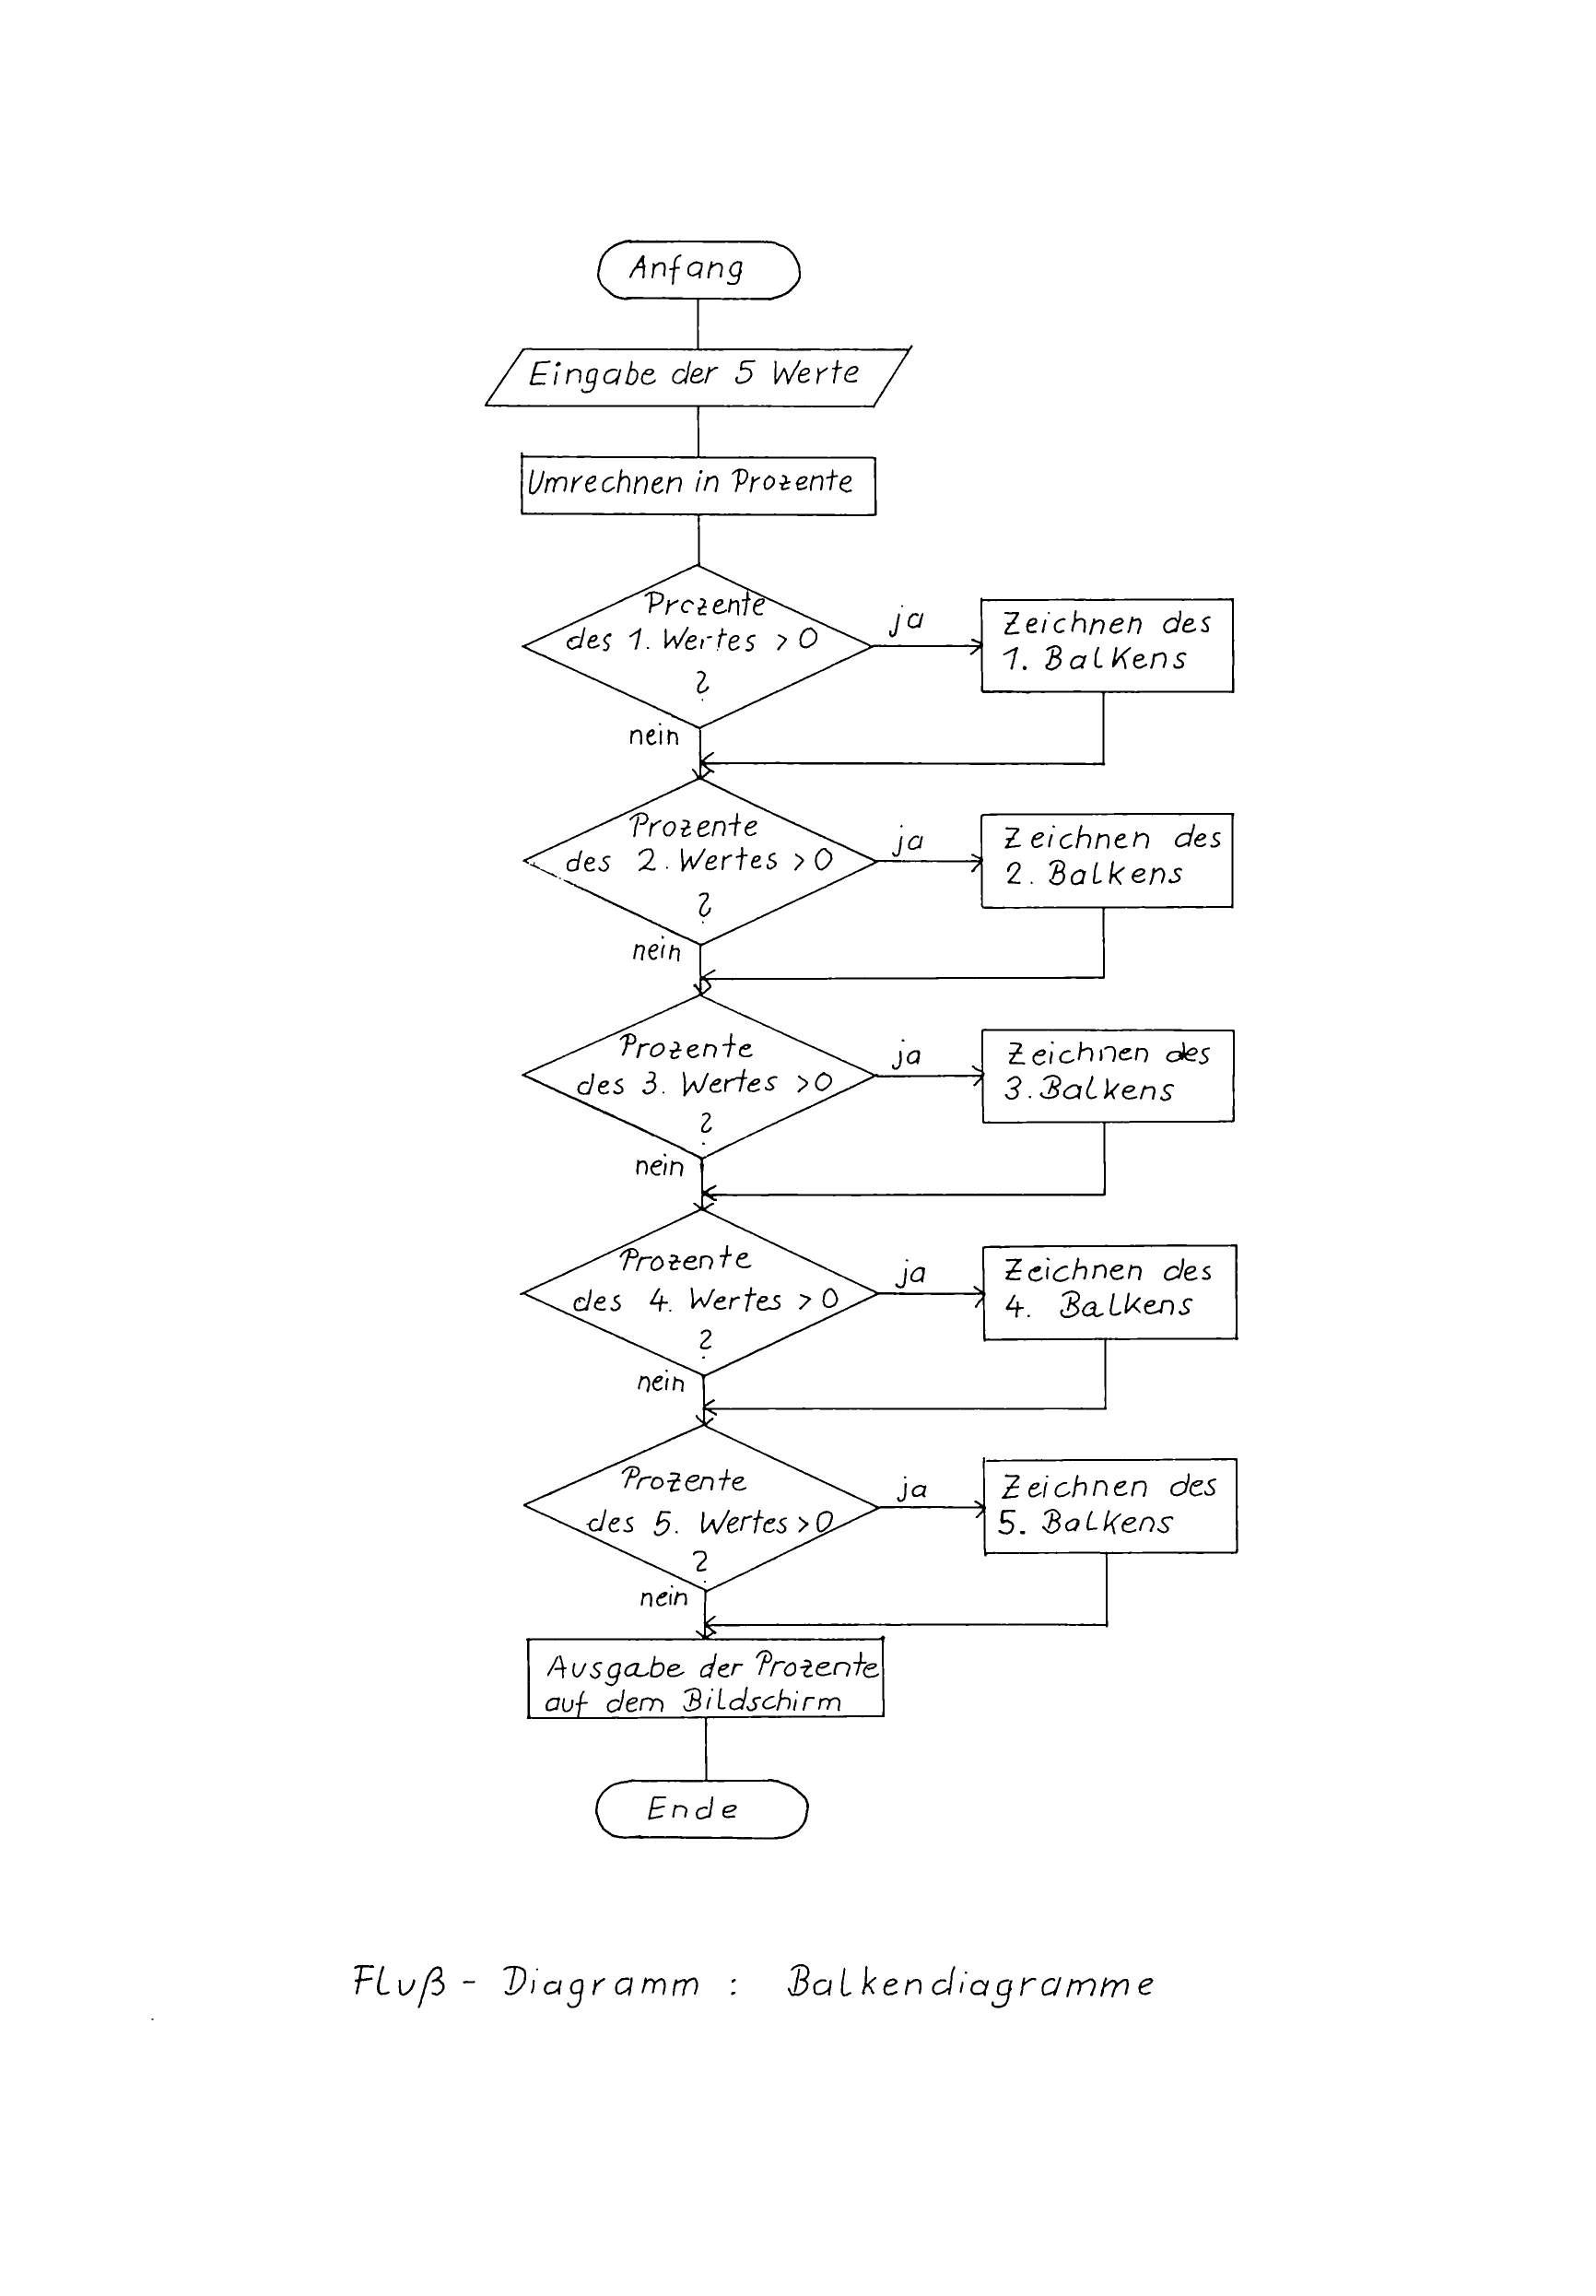 Anfang
Eingabe der 5 Werte
Umrechnen in Prozente
Prozente
des 1. Wertes > 0
?
ja
Zeichnen des
1. Balkens
nein
Prozente
des 2. Wertes > 0
?
ja
Zeichnen des
2. Balkens
nein
Prozente
des 3. Wertes > 0
?
ja
Zeichnen des
3. Balkens
nein
Prozente
des 4. Wertes > 0
?
ja
Zeichnen des
4. Balkens
nein
Prozente
des 5. Wertes > 0
?
ja
Zeichnen des
5. Balkens
nein
Ausgabe der Prozente
auf dem Bildschirm
Ende
Fluß - Diagramm : Balkendiagramme